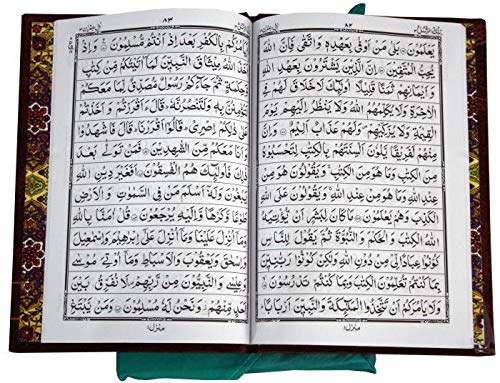 ٨٢
يَعْلَمُوْنَ ۝ بَلٰى مَنْ اَوْفٰى بِعَهْدِهٖ وَاتَّقٰى فَاِنَّ اللّٰهَ
يُحِبُّ الْمُتَّقِيْنَ ۝ اِنَّ الَّذِيْنَ يَشْتَرُوْنَ بِعَهْدِ اللّٰهِ
وَاَيْمَانِهِمْ ثَمَنًا قَلِيْلًا اُولٰٓئِكَ لَا خَلَاقَ لَهُمْ فِى
الْاٰخِرَةِ وَلَا يُكَلِّمُهُمُ اللّٰهُ وَلَا يَنْظُرُ اِلَيْهِمْ يَوْمَ
الْقِيٰمَةِ وَلَا يُزَكِّيْهِمْ وَلَهُمْ عَذَابٌ اَلِيْمٌ ۝ وَاِنَّ
مِنْهُمْ لَفَرِيْقًا يَّلْوٗنَ اَلْسِنَتَهُمْ بِالْكِتٰبِ لِتَحْسَبُوْهُ
مِنَ الْكِتٰبِ وَمَا هُوَ مِنَ الْكِتٰبِ وَيَقُوْلُوْنَ هُوَ مِنْ
عِنْدِ اللّٰهِ وَمَا هُوَ مِنْ عِنْدِ اللّٰهِ وَيَقُوْلُوْنَ عَلَى اللّٰهِ
الْكَذِبَ وَهُمْ يَعْلَمُوْنَ ۝ مَا كَانَ لِبَشَرٍ اَنْ يُّؤْتِيَهُ
اللّٰهُ الْكِتٰبَ وَالْحُكْمَ وَالنُّبُوَّةَ ثُمَّ يَقُوْلَ لِلنَّاسِ
كُوْنُوْا عِبَادًا لِّىْ مِنْ دُوْنِ اللّٰهِ وَلٰكِنْ كُوْنُوْا رَبّٰنِيّٖنَ
بِمَا كُنْتُمْ تُعَلِّمُوْنَ الْكِتٰبَ وَبِمَا كُنْتُمْ تَدْرُسُوْنَ ۝
وَلَا يَاْمُرَكُمْ اَنْ تَتَّخِذُوا الْمَلٰٓئِكَةَ وَالنَّبِيّٖنَ اَرْبَابًا
منزل ١
٨٣
اَيَاْمُرُكُمْ بِالْكُفْرِ بَعْدَ اِذْ اَنْتُمْ مُّسْلِمُوْنَ ۝ وَاِذْ
اَخَذَ اللّٰهُ مِيْثَاقَ النَّبِيّٖنَ لَمَآ اٰتَيْتُكُمْ مِّنْ كِتٰبٍ
وَّحِكْمَةٍ ثُمَّ جَآءَكُمْ رَسُوْلٌ مُّصَدِّقٌ لِّمَا مَعَكُمْ
لَتُؤْمِنُنَّ بِهٖ وَلَتَنْصُرُنَّهٗ قَالَ ءَاَقْرَرْتُمْ وَاَخَذْتُمْ
عَلٰى ذٰلِكُمْ اِصْرِىْ قَالُوْٓا اَقْرَرْنَا قَالَ فَاشْهَدُوْا
وَاَنَا مَعَكُمْ مِّنَ الشّٰهِدِيْنَ ۝ فَمَنْ تَوَلّٰى بَعْدَ
ذٰلِكَ فَاُولٰٓئِكَ هُمُ الْفٰسِقُوْنَ ۝ اَفَغَيْرَ دِيْنِ اللّٰهِ
يَبْغُوْنَ وَلَهٗٓ اَسْلَمَ مَنْ فِى السَّمٰوٰتِ وَالْاَرْضِ
طَوْعًا وَّكَرْهًا وَّاِلَيْهِ يُرْجَعُوْنَ ۝ قُلْ اٰمَنَّا بِاللّٰهِ
وَمَآ اُنْزِلَ عَلَيْنَا وَمَآ اُنْزِلَ عَلٰٓى اِبْرٰهِيْمَ وَاِسْمٰعِيْلَ
وَاِسْحٰقَ وَيَعْقُوْبَ وَالْاَسْبَاطِ وَمَآ اُوْتِىَ مُوْسٰى
وَعِيْسٰى وَالنَّبِيُّوْنَ مِنْ رَّبِّهِمْ لَا نُفَرِّقُ بَيْنَ
اَحَدٍ مِّنْهُمْ وَنَحْنُ لَهٗ مُسْلِمُوْنَ ۝ وَمَنْ يَّبْتَغِ
منزل ١